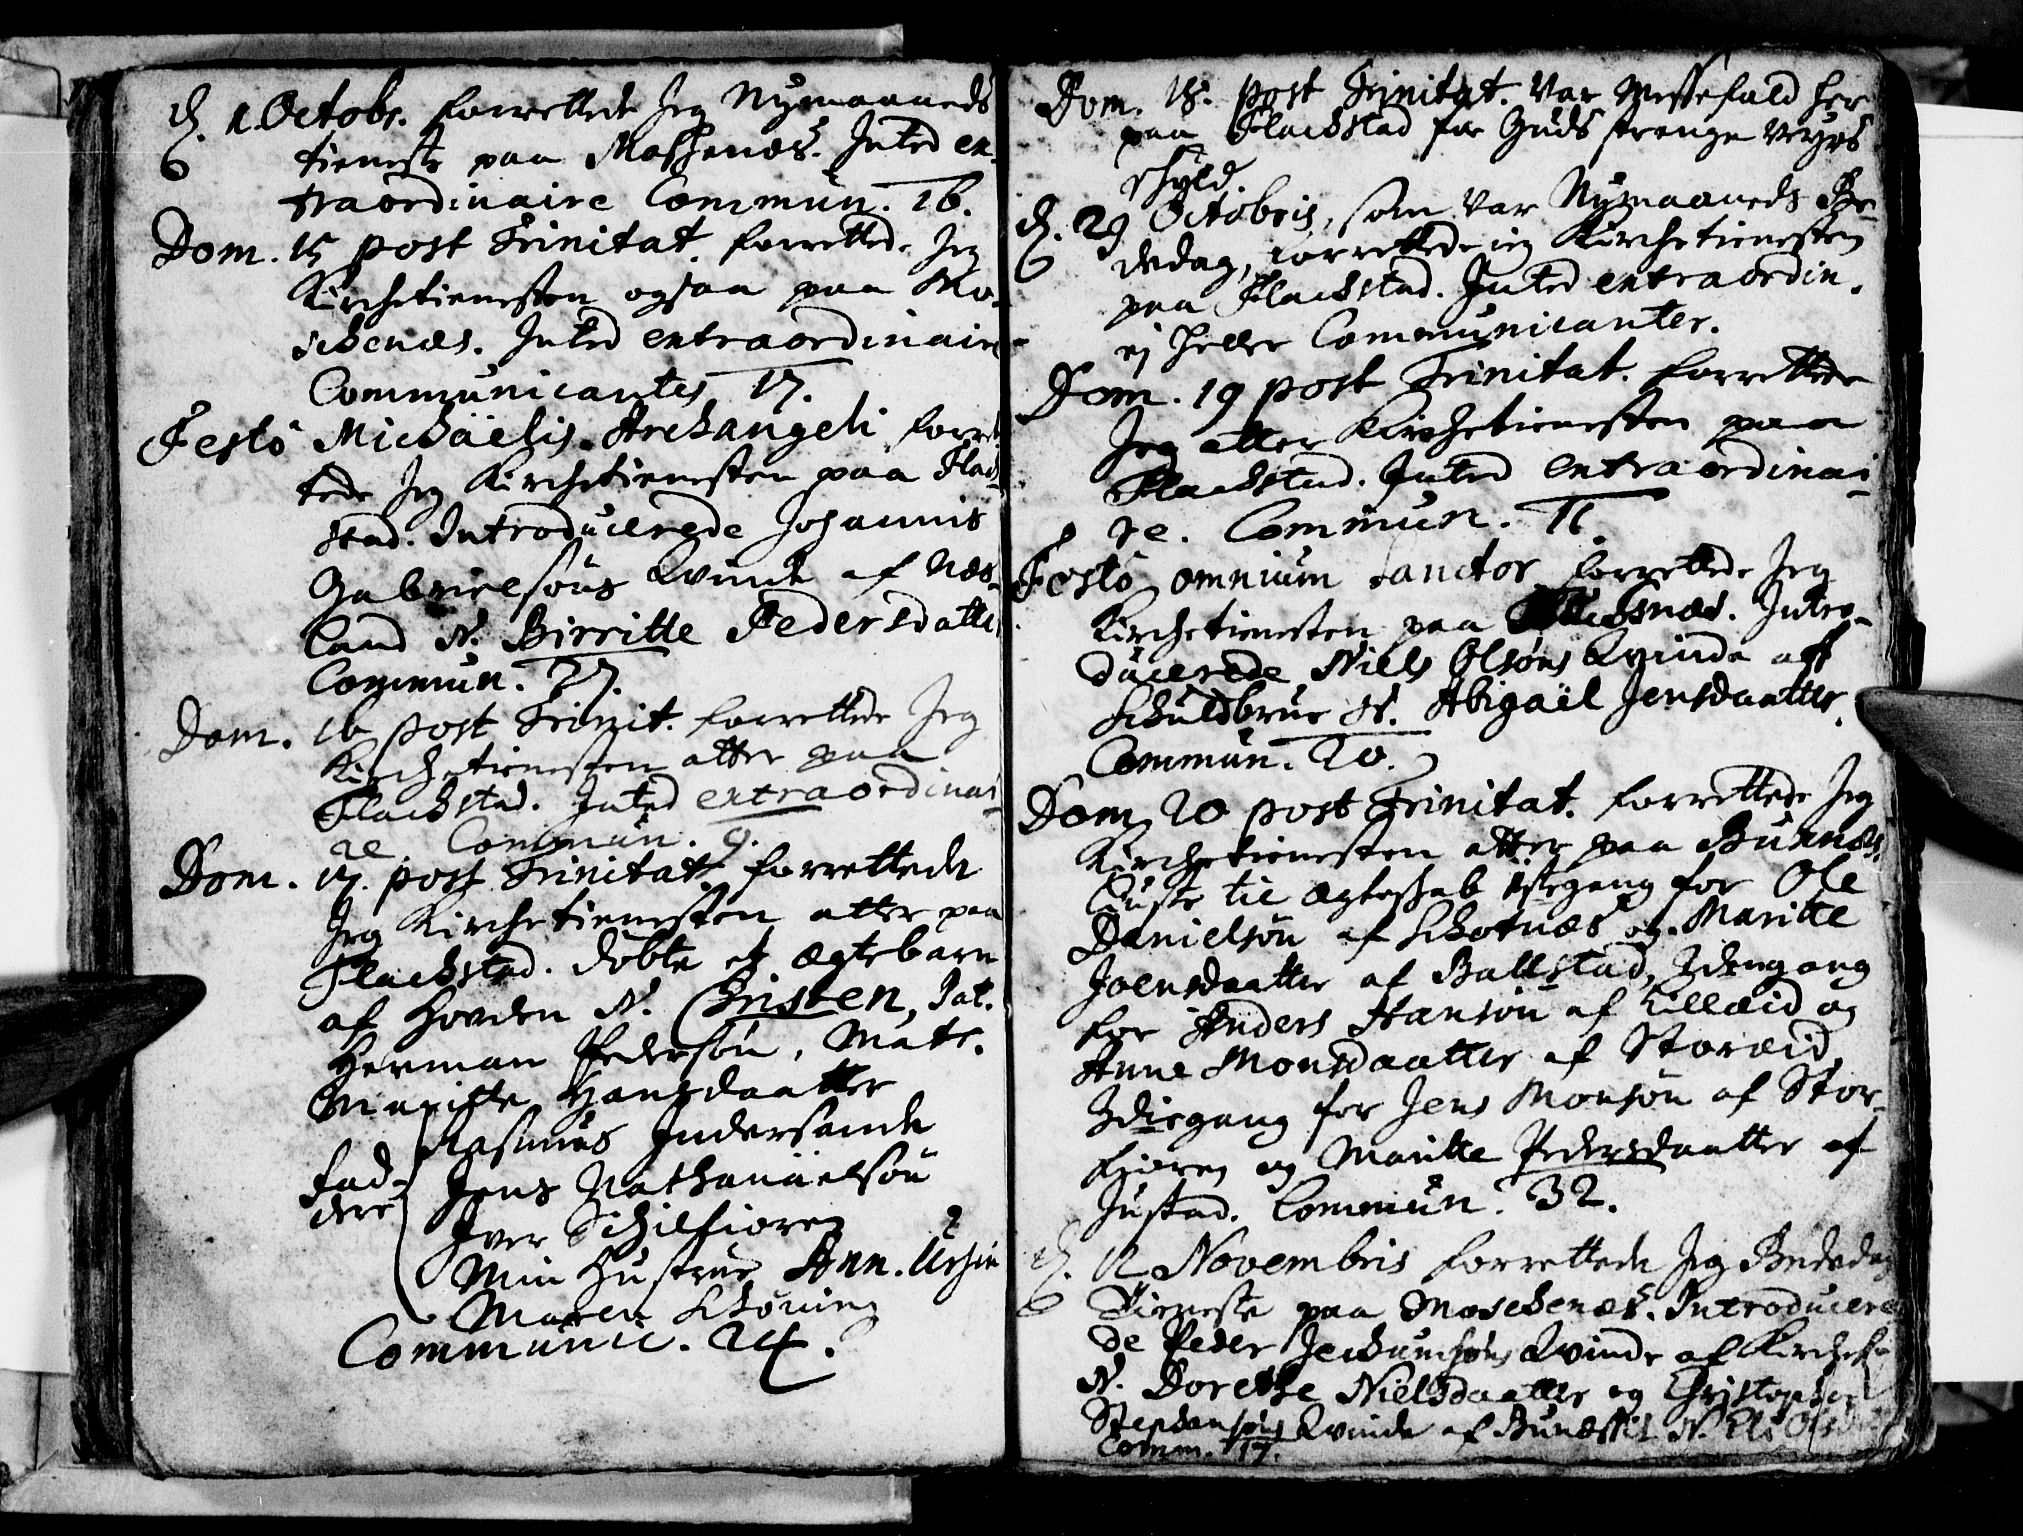 d. 1. Octobr. forrettede Jeg Nymaaneds
tieneste paa Moshenæs. Inted ex-
traordinaire Commun. 16.
Dom. 15 post Trinitat. forrettede Jeg
Kirchetienesten ogsaa paa Mo-
schenæs. Inted extraordinaire
Communicantes 17.
Festo Michaelis Archangeli forret
tede Jeg Kirchetienesten paa Flach-
stad. Introducerede Johannis
Gabrielsøns Qvinde af Næs-
land N. Birritte Pedersdatter
Commun. 27.
Dom. 16 post Trinit. forrettede Jeg
Kirchetienesten atter paa
Flachstad. Inted extraordinai-
re Commun. 9.
Dom. 17. post Trinitat forrettede
Jeg Kirchetienesten atter paa
Flachstad. døbte et ægtebarn
af Hovden N. Christen, Pat.
Herman Pedersøn, Matr.
Maritte Hansdaatter
Rasmus Indersande
Fad-
dere
Jens Nathanaelsøn
Iver Schilfioren
Min Hustrue Ann.
Maren Schøning
Communic. 24.
Dom. 18. post Trinitat. Var Messefald her
paa Flachstad for Guds strenge veyrs
schyld.
d. 29 Octobris, som var Nymaaneds Be-
dedag, forrettede jeg Kirchetienesten
paa Flachstad. Inted extraordin.
ej heller Communicanter.
Dom. 19 post Trinitat. forrettede
Jeg atter Kirchetienesten paa
Flachstad. Inted extraordinai-
re. Commun. 11.
Festo omnium sanctor forrettede Jeg
Kirchetienesten paa Intro-
ducerede Niels Olsøns Qvinde aff
Schuldbrue N. Abigaël Jensdaatter.
Commun. 20.
Dom 20 post Trinitat. forrettede Jeg
Kirchetienesten atter paa Buxnæs.
Liuste til Ægteschab 1stegang for Ole
Danielsøn af Schotnæs og Maritte
Joensdaatter af Ballstad, 2dengang
for Anders Hansøn af Lilleeid og
Anne Monsdaatter af Storeeid,
3diegang for Jens Monsøn af Stor-
fioren og Maritte Pedersdaatter af
Justad. Commun. 32.
d. 12 Novembris forrettede Jeg Bededag
Tieneste paa Moschenæs. Introducere
de Peder Jochumsøns Qvinde af Kirche
N. Dorethe Nielsdaatter og Christopher
Stephensøns Qvinde af N. Eli
Comm. 17.